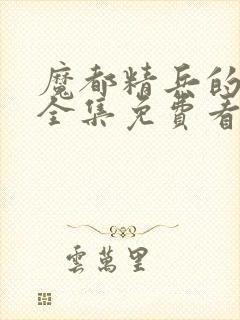 魔都精兵的
全集免費看
雲萬里